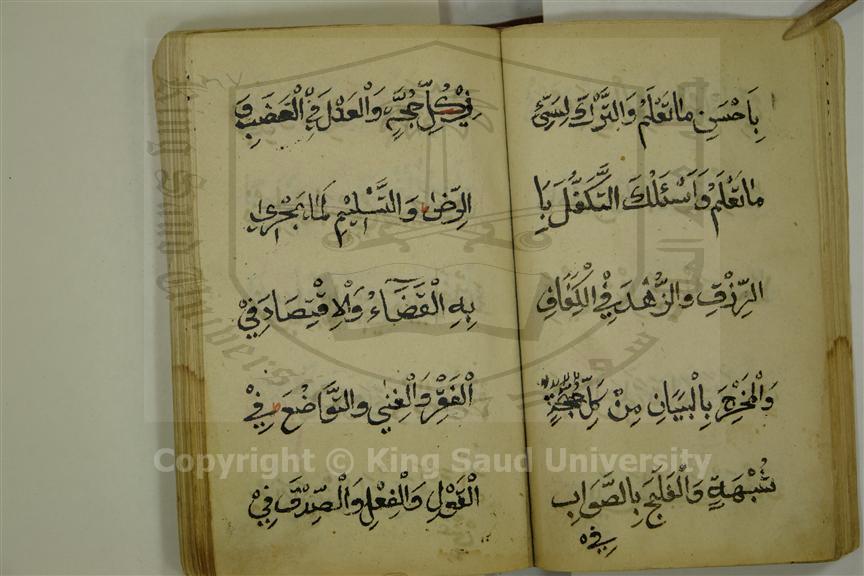 بِاَحْسَنِ مَا تَعْلَمُ وَالتَّرْكَ لِسَيِّئِ
مَا تَعْلَمُ وَاَسْئَلُكَ التَّكَفُّلَ بِا
الرِّزْقِ وَالزُّهْدَ فِي الْكَفَافِ
وَالْمَخْرَجَ بِالْبَيَانِ مِنْ كُلِّ
شُبْهَةٍ وَالْفَلَجَ بِالصَّوَابِ
فِي
فِي كُلِّ حُجَّةٍ وَالْعَدْلَ فِي الْغَضَبِ وَ
الرِّضَا وَالتَّسْلِيْمِ لِمَا يَجْرِي
بِهِ الْقَضَاءُ وَالْاِقْتِصَادَ فِيْ
الْفَقْرِ وَالْغِنٰي وَالتَّوَاضُعَ فِيْ
الْقَوْلِ وَالْفِعْلِ وَالْصِّدْقَ فِيْ
Copyright © King Saud University